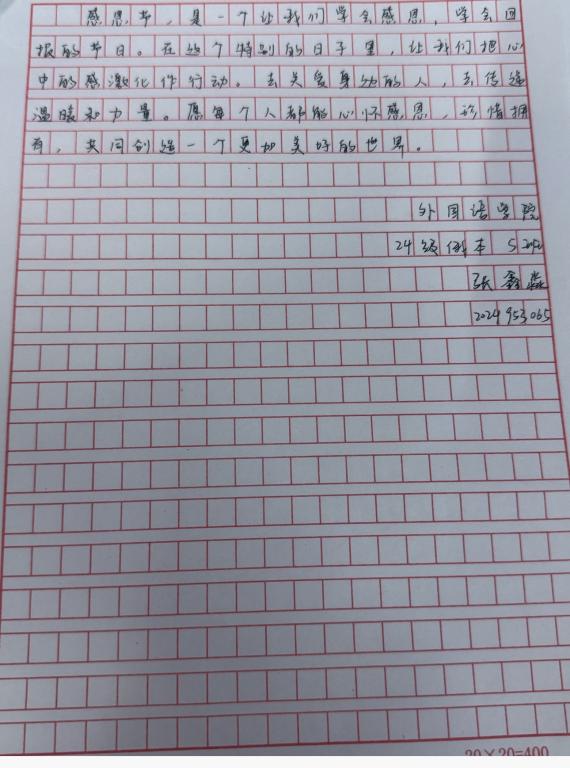 感恩节，是一个让我们学会感恩，学会回
报的节日。在这个特别的日子里，让我们把心
中的感激化作行动。去关爱身边的人，去传递
温暖和力量。愿每个人都能心怀感恩，珍惜拥
有，共同创造一个更加美好的世界。
外国语学院
24级俄本5班
张鑫淼
2024953065
20×20=400